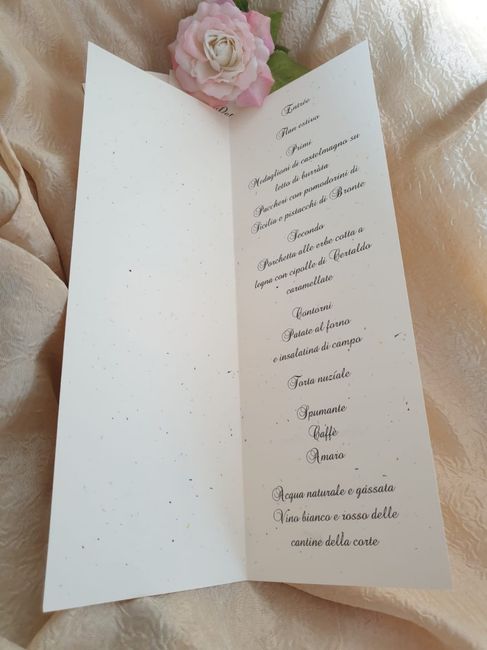 Entrée
Flan estivo
Primi
Medaglioni di castelmagno su
letto di burràta
Paccheri con pomodorini di
Sicilia e pistacchi di Bronte
Secondo
Porchetta alle erbe cotta a
legna con cipolle di Certaldo
caramellate
Contorni
Patate al forno
e insalatina di campo
Torta nuziale
Spumante
Caffè
Amaro
Acqua naturale e gassata
Vino bianco e rosso delle
cantine della corte